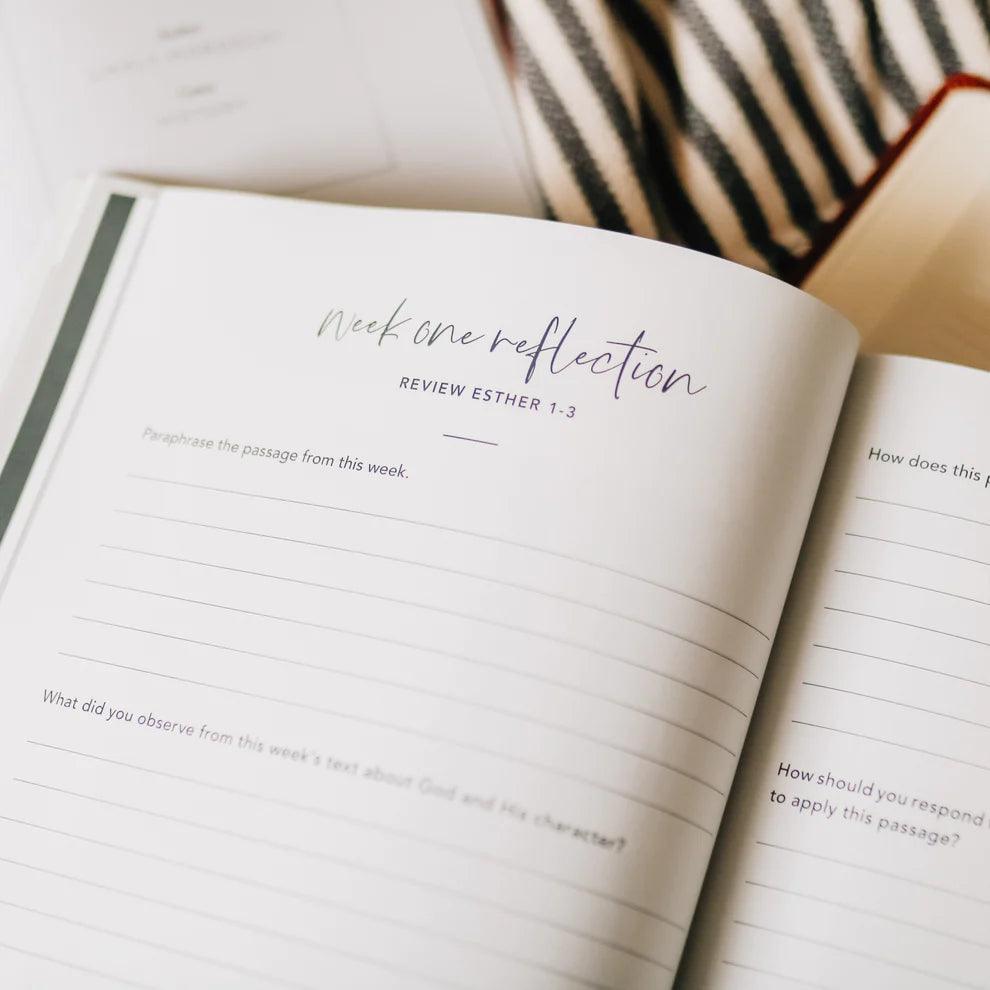 week one reflection
REVIEW ESTHER 1-3
Paraphrase the passage from this week.
What did you observe from this week's text about God and His character?
How does this
How should you respond
to apply this passage?